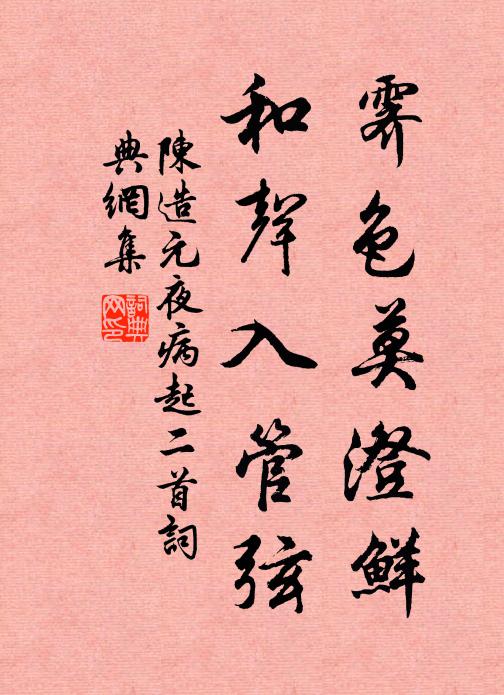 霽色莫澄鮮
和聲入管弦
陳造元夜病起二首詞
典網集
詞典網印